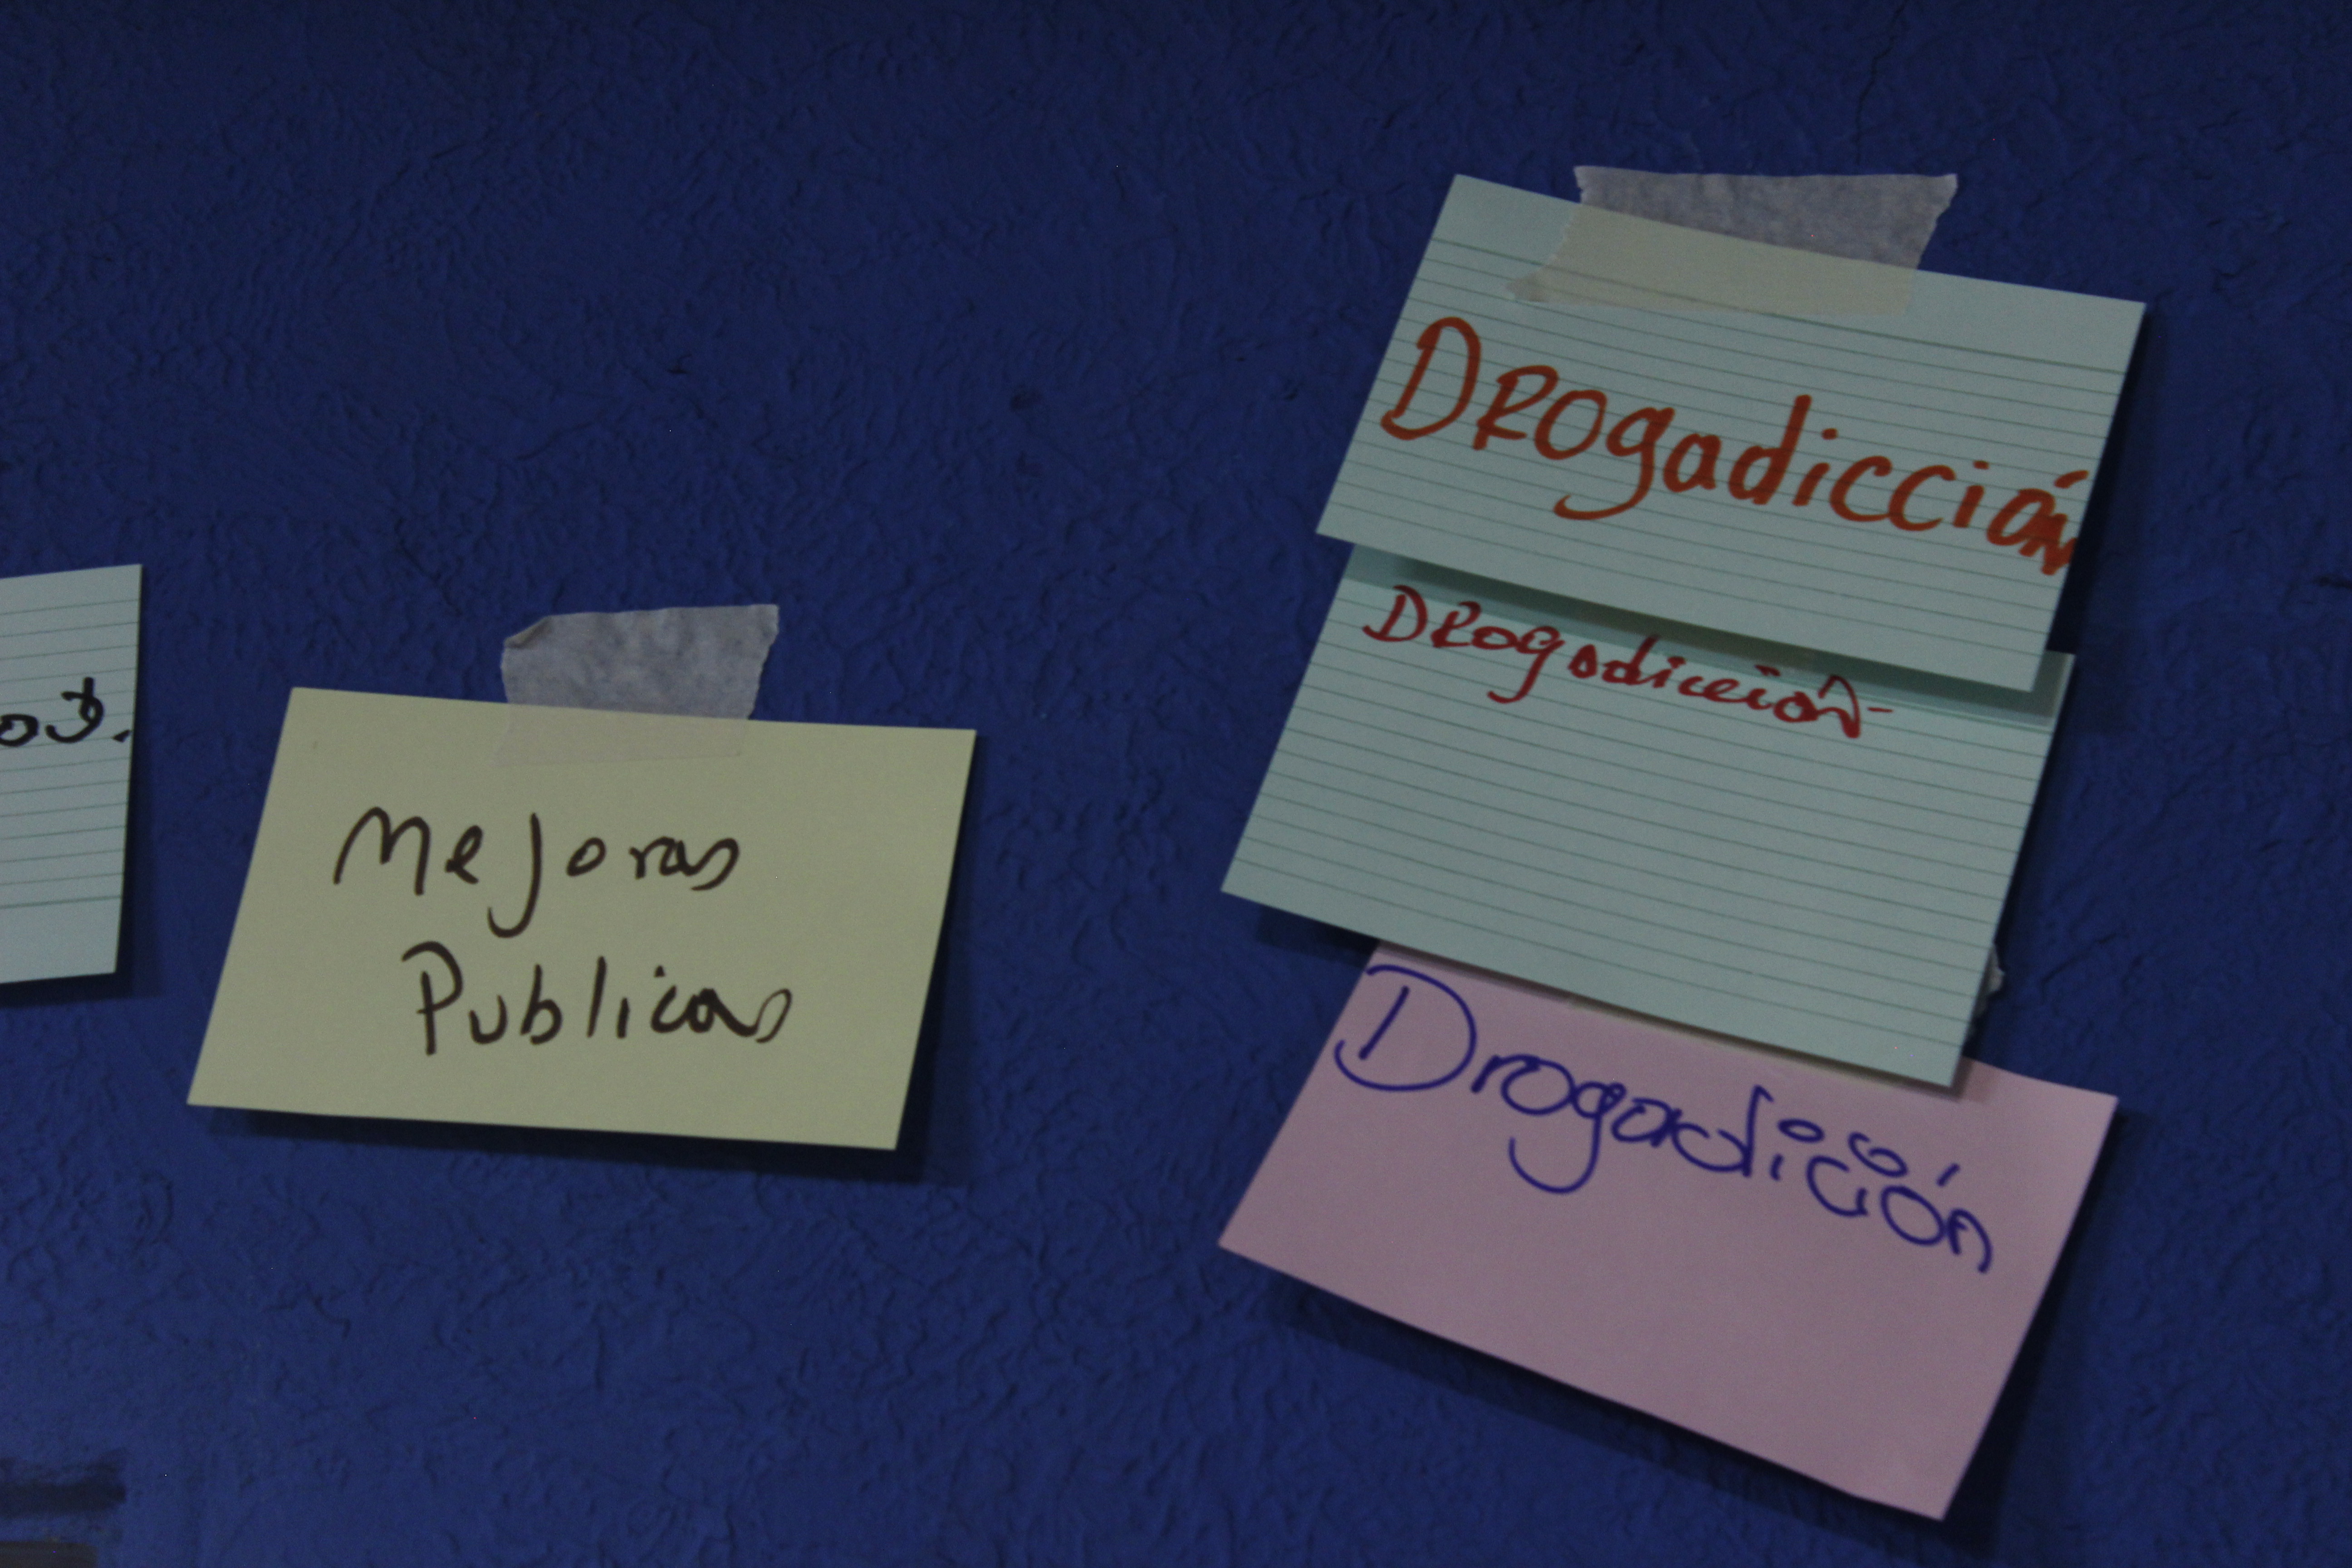 Mejoras
Publicas
DRogadicción
DRogadicción
Drogadicción